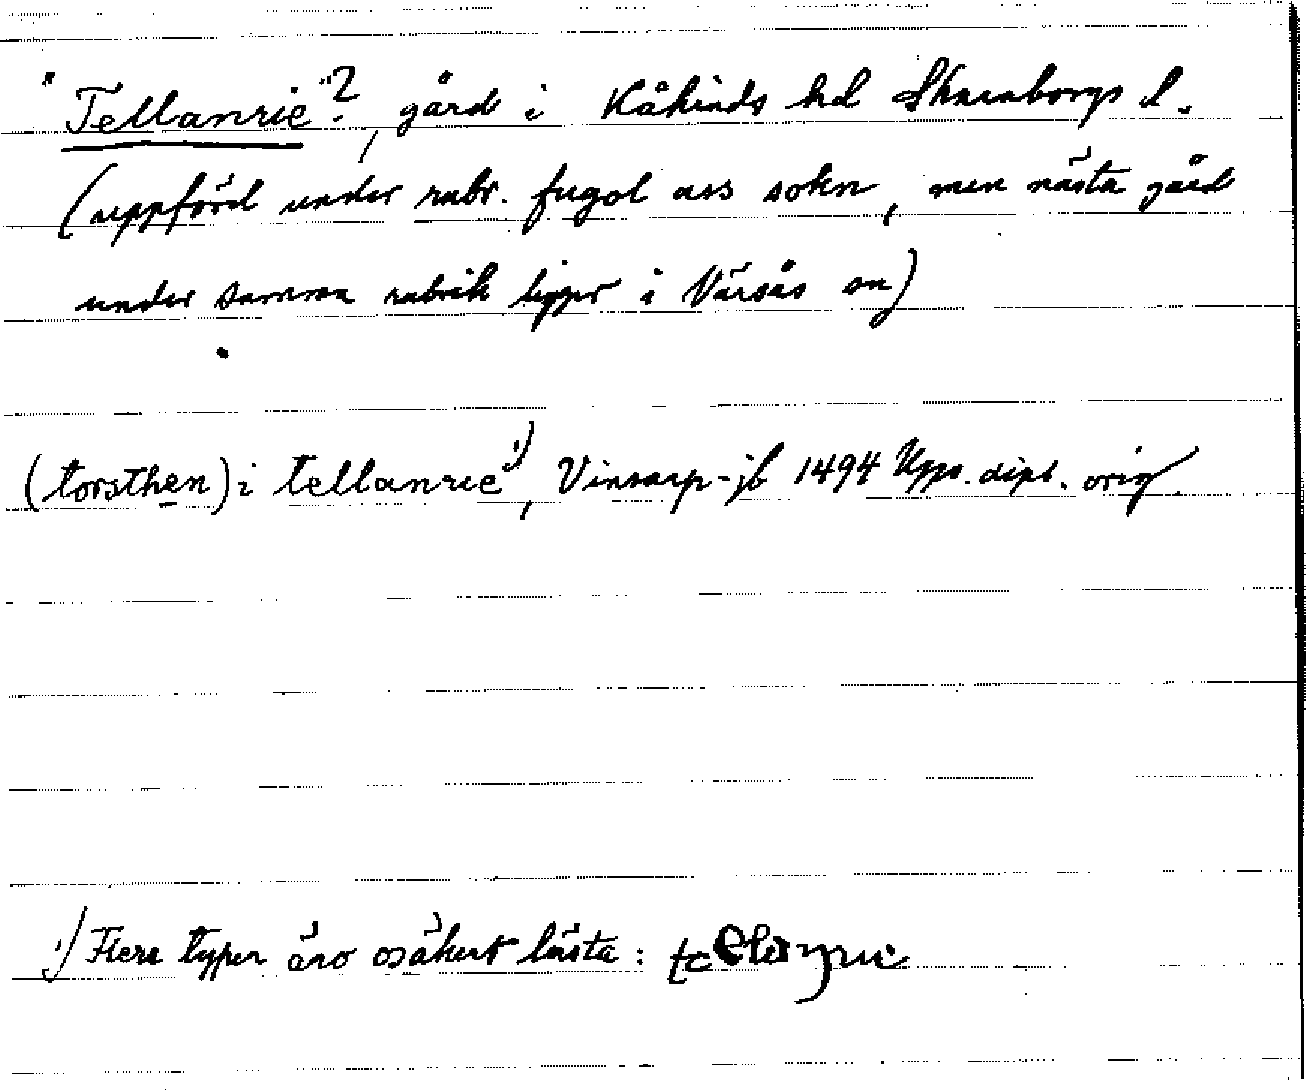 "Tellanrie"?, gård i Kåkinds hd Skaraborgs l.
(uppförd under rubr. fugol ass sokn, men nästa gård
under samma rubrik ligger i Värsås sn)
(torsthen) i tellanrie¹⁾, Vinsarp-jb 1494 Upps. dipl. orig
¹⁾ Flere typer äro osäkert lästa: